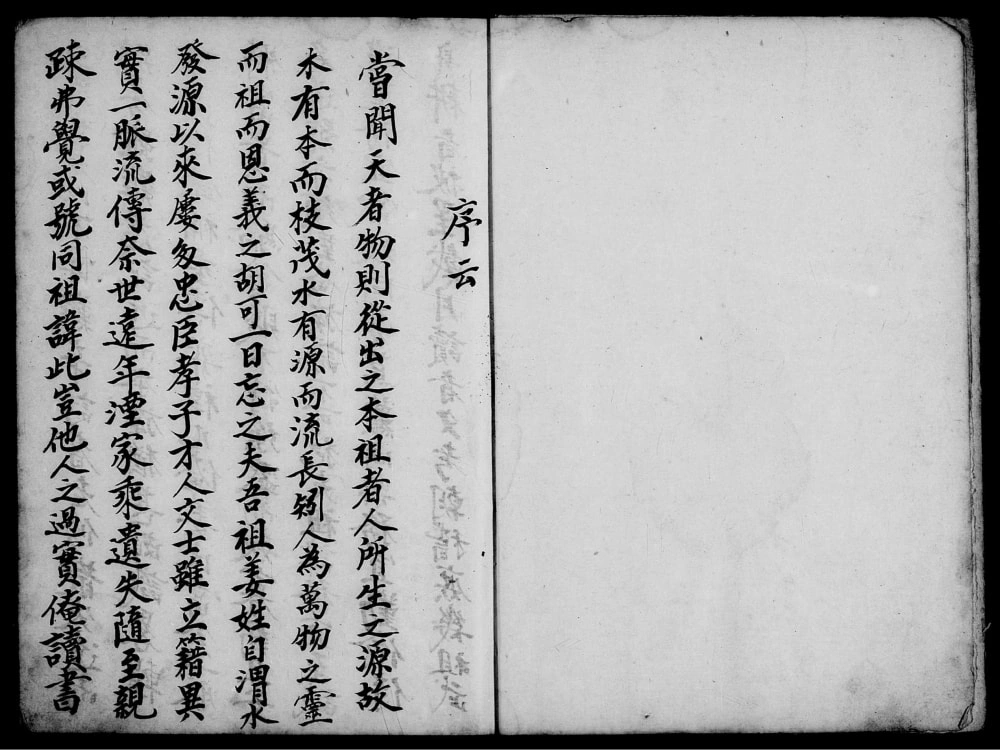 序云
嘗聞天者物則從出之本祖者人所生之源故
木有本而枝茂水有源而流長矧人為萬物之靈
而祖而恩義之胡可一日忘之夫吾祖姜姓自渭水
發源以來屢多忠臣孝子才人文士雖立籍異
實一脈流傳奈世遠年湮家乘遺失隨至親
疎弗覺或號同祖諱此豈他人之過實俺讀書